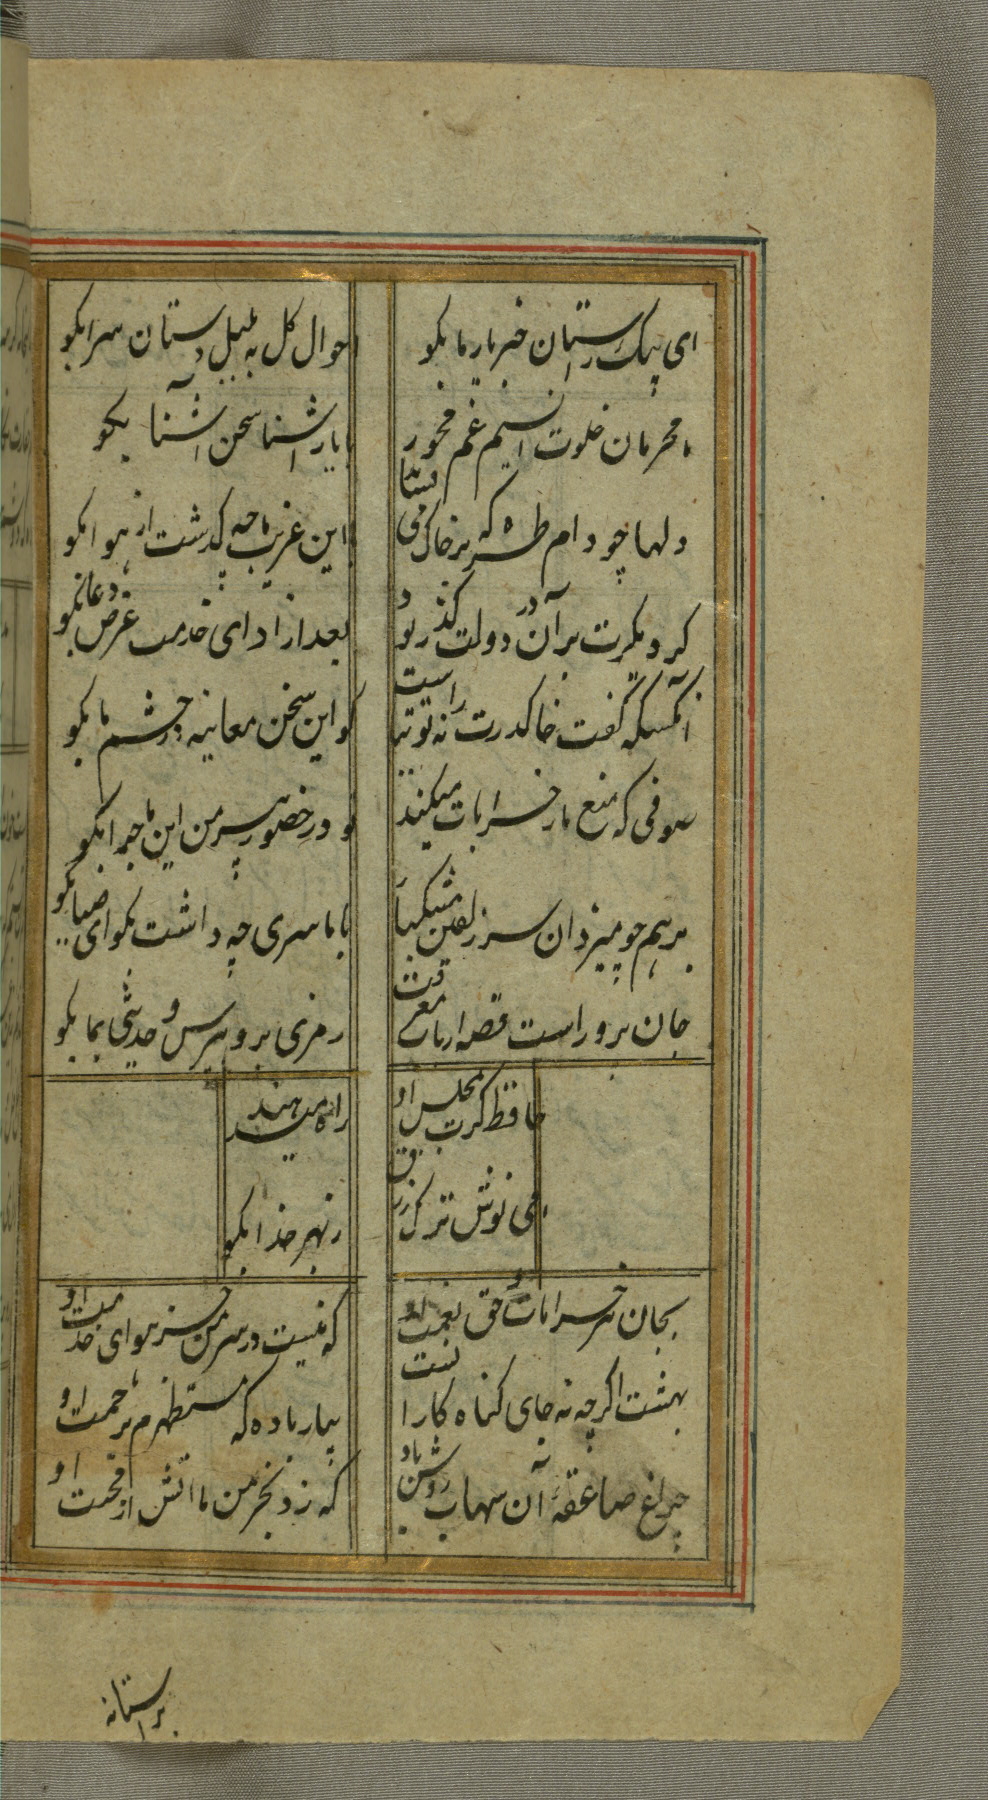 ای پیک راستان خبر یار ما بکو
احوال کل به بلبل دستان سرا بکو
ما محرمان خلوت انسیم غم مخور
با یار اشنا سخن آشنا بکو
دلها چو دام طره که بر خاک می فشا
با این غریب ما چه کذشت از هوا بکو
کر دیکرت بر آن در دولت کذر بود
بعد از ادای خدمت عرض دعا بکو
آنکسکه گفت خاک در دت نه توتیاست
کو این سخن معاینه در چشم ما بکو
صوفی که منع ما ز خرابات میکند
کو در حضور پیر من این ماجرا بکو
برهم چو میزد آن سر زلفین مشکبا
با ما سری چه داشت بکو ای صبا بکو
جان پرور است قصه ارباب معرفت
رمزی برو بپرس و حدیثی بما بکو
حافظ کرت بمجلس او
راه میدهند
می نوش ترک زرق
ز بهر خدا بکو
بجان پیر خرابات و حق نعمت او
که نیست در سر من جز هوای خدمت او
بهشت اکرچه نه جای کناه کارانست
بیار باده که مستظهرم برحمت او
چراغ صاعقهٔ آن سهاب روشن باد
که زد بخرمن ما اتش از محبت او
بر استانه